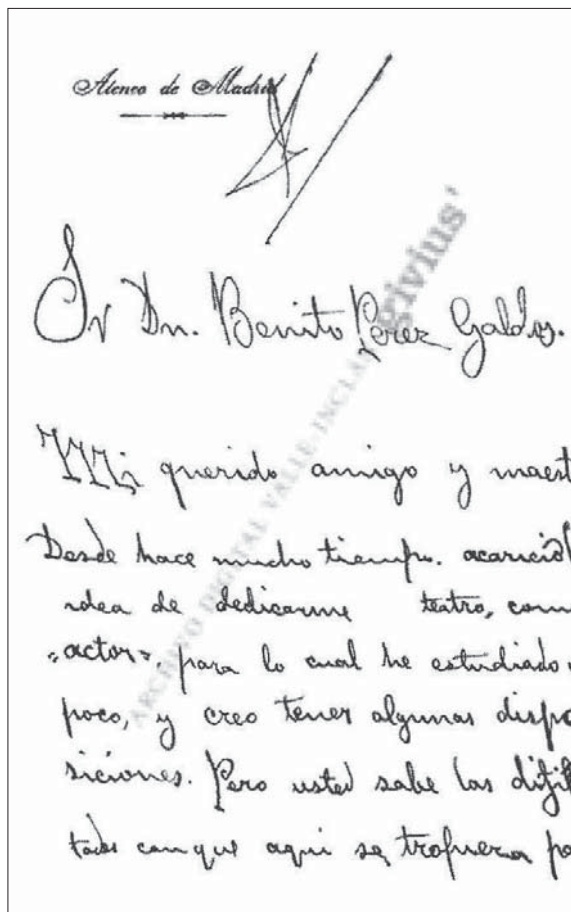 Ateneo de Madrid
Sr Dn. Benito Perez Galdos.
Mi querido amigo y maest
Desde hace mucho tiempo. acaricio
idea de dedicarme teatro, com
"actor", para lo cual he estudiado
poco, y creo tener algunas dispo
siciones. Pero usted sabe las difil
tades con que aqui se tropieza pa
ARCHIVO DIGITAL VALLE-INCLÁN givius'